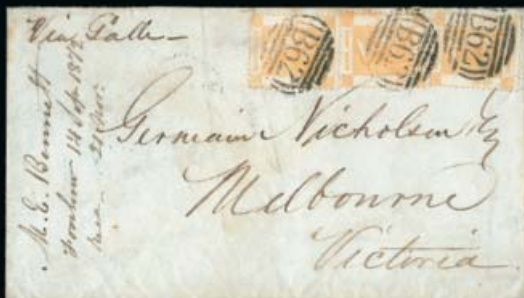 Via Galle
B62
B62
B62
M. E. Bennett
Foochow 14 Sep. 1872
Germain Nicholson Esq
Melbourne
Victoria